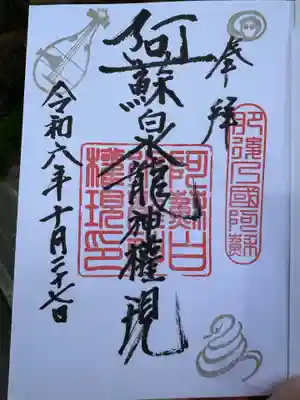 奉拝
肥後國阿蘇
阿蘇白水龍神權現
阿蘇白
權現
令和六年十月二十七日